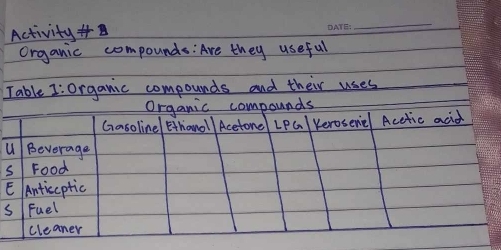 DATE:
Activity #1
Organic compounds: Are they useful
Table 1: Organic compounds and their uses
Organic compounds
Gasoline Ethanol Acetone LPG Kerosene Acetic acid
U Beverage
S Food
E Antiseptic
S Fuel
Cleaner